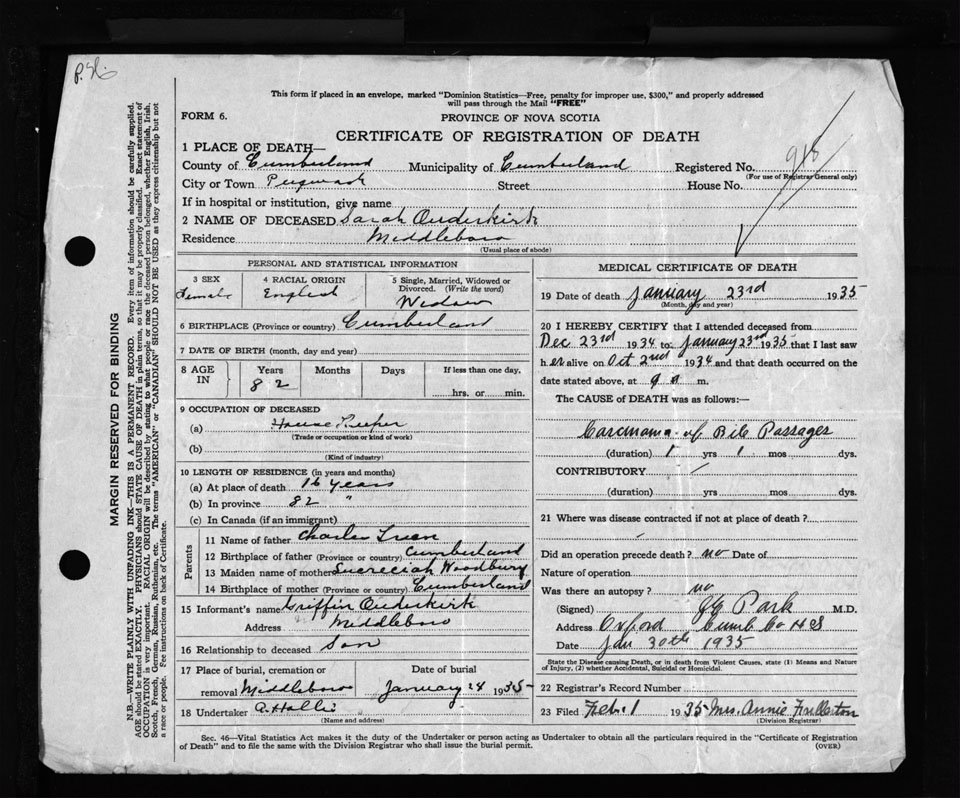 P.H.
This form if placed in an envelope, marked "Dominion Statistics—Free, penalty for improper use, $300," and properly addressed
will pass through the Mail "FREE"
FORM 6.
PROVINCE OF NOVA SCOTIA
CERTIFICATE OF REGISTRATION OF DEATH
1 PLACE OF DEATH—
County of Cumberland Municipality of Cumberland Registered No. 918
(For use of Registrar General only)
City or Town Pugwash Street House No.
If in hospital or institution, give name
2 NAME OF DECEASED Sarah Ouderkirk
Residence Middleboro
(Usual place of abode)
PERSONAL AND STATISTICAL INFORMATION
3 SEX 4 RACIAL ORIGIN 5 Single, Married, Widowed or
Divorced. (Write the word)
Female English Widow
6 BIRTHPLACE (Province or country) Cumberland
7 DATE OF BIRTH (month, day and year)
8 AGE IN Years Months Days If less than one day,
82 hrs. or min.
9 OCCUPATION OF DECEASED
(a) House Keeper
(Trade or occupation or kind of work)
(b)
(Kind of industry)
10 LENGTH OF RESIDENCE (in years and months)
(a) At place of death 16 years
(b) In province 82 "
(c) In Canada (if an immigrant)
Parents
11 Name of father Charles
12 Birthplace of father (Province or country) Cumberland
13 Maiden name of mother Woodbury
14 Birthplace of mother (Province or country) Cumberland
15 Informant's name Griffin Ouderkirk
Address Middleboro
16 Relationship to deceased Son
17 Place of burial, cremation or Date of burial
removal Middleboro January 24 1935
18 Undertaker A.
(Name and address)
MEDICAL CERTIFICATE OF DEATH
19 Date of death January 23rd 1935
(Month, day and year)
20 I HEREBY CERTIFY that I attended deceased from
Dec 23rd 1934 to January 23rd 1935 that I last saw
her alive on Oct 2nd 1934 and that death occurred on the
date stated above, at 9 a m.
The CAUSE of DEATH was as follows:—
Carcinoma of Bile Passages
(duration) 1 yrs 1 mos dys.
CONTRIBUTORY
(duration) yrs mos dys.
21 Where was disease contracted if not at place of death?
Did an operation precede death? no Date of
Nature of operation
Was there an autopsy? no
(Signed) Park M.D.
Address Oxford Cumb Co N S
Date Jan 30th 1935
State the Disease causing Death, or in death from Violent Causes, state (1) Means and Nature
of Injury, (2) whether Accidental, Suicidal or Homicidal.
22 Registrar's Record Number
23 Filed Feb. 1 1935 Mrs. Annie Fullerton
(Division Registrar)
Sec. 46—Vital Statistics Act makes it the duty of the Undertaker or person acting as Undertaker to obtain all the particulars required in the "Certificate of Registration
of Death" and to file the same with the Division Registrar who shall issue the burial permit.
(OVER)
MARGIN RESERVED FOR BINDING
N.B.—WRITE PLAINLY WITH UNFADING INK—THIS IS A PERMANENT RECORD. Every item of information should be carefully supplied.
AGE should be stated EXACTLY. PHYSICIANS should STATE CAUSE OF DEATH in plain terms, so that it may be properly classified. Exact statement of
OCCUPATION is very important. RACIAL ORIGIN will be described by stating to what people or race the deceased person belonged, whether English, Irish,
Scotch, French, German, Russian, Ruthenian, etc. The terms "AMERICAN" or "CANADIAN" SHOULD NOT BE USED as they express citizenship but not
a race or people. See instructions on back of Certificate.